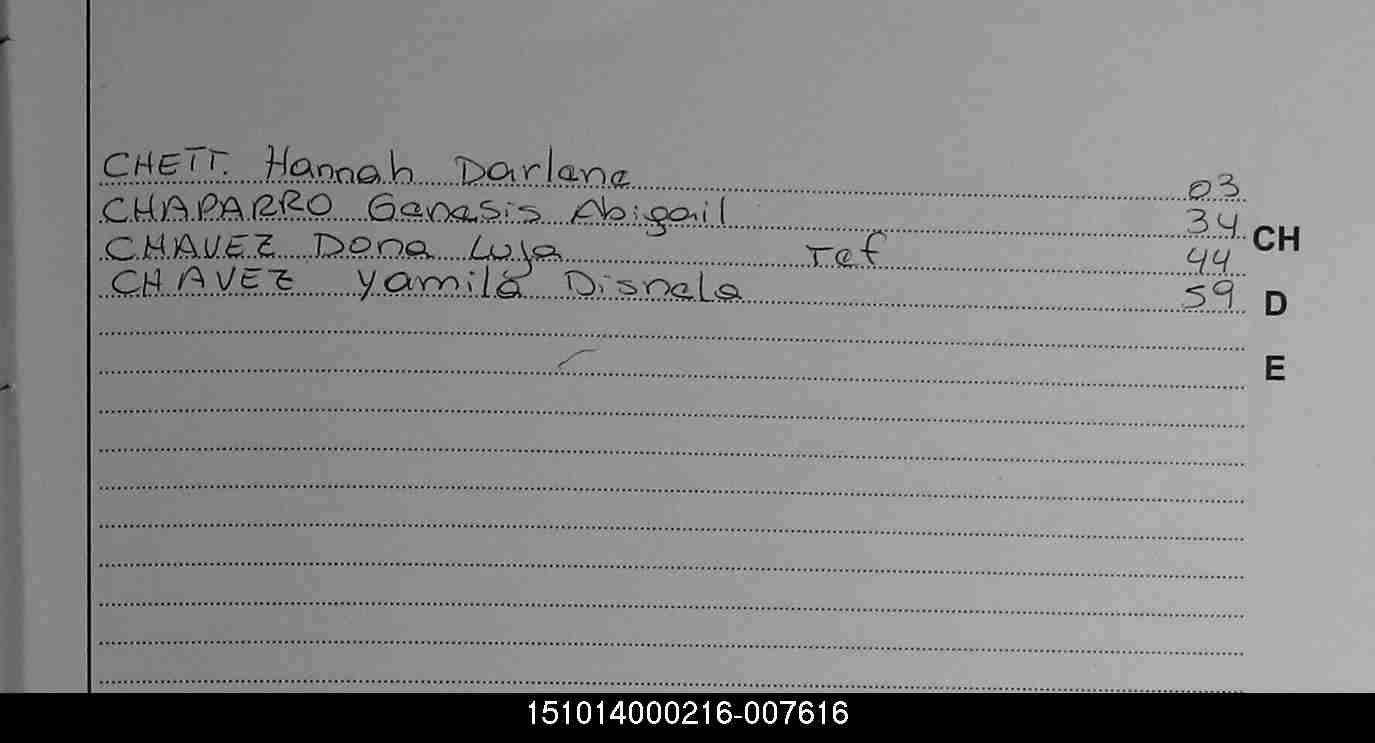 CHETT. Hannah Darlene 03
CHAPARRO Genesis Abigail 34
CH
CHAVEZ Dona Luja Tef 44
CHAVEZ Yamila Disnela 59
D
E
151014000216-007616